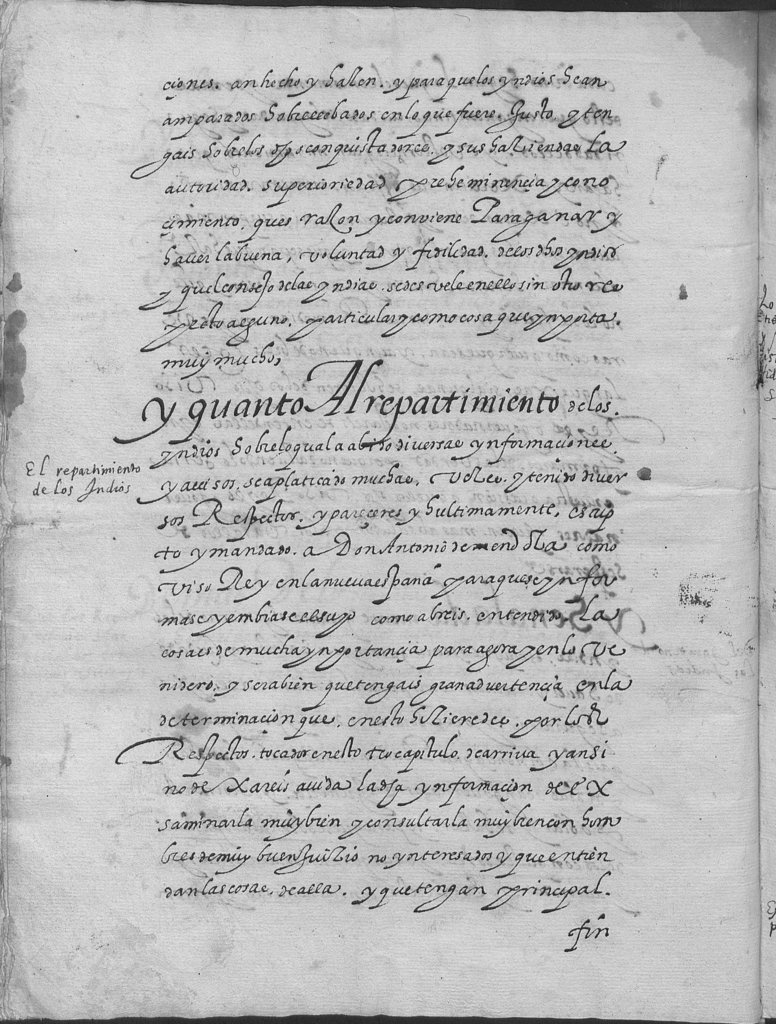 çiones. an hecho y hazen. y para que los yndios sean
amparados sobrellebados en lo que fuere. Justo, y ten
gais sobre los dhos conquistadores, y sus haziendas La
autoridad. superioriedad y preheminençia y cono
çimiento, ques razon y conviene Para ganar y
haver la buena, voluntad y fidilidad. de los dhos yndios
y quel consejo de las yndias. se desvele en ello sin otro res
pecto alguno. particular y como cosa que ynporta.
muy mucho,
y quanto Al repartimiento de los.
yndios sobre lo qual a abido diversas ynformaciones
y avisos, se a platicado muchas, vezes. y tenido diver
El repartimiento
de los Indios
sos Respectos. y pareçeres y hultimamente, escrip
to y mandado. a Don Antonio de mendoza como
Viso Rey en la nueva españa para que se ynfor
mase y embiase el suyo como abreis. entendido, La
cosa es de mucha ynportançia para agora y en lo ve
nidero. y sera bien que tengais gran advertençia en la
determinaçion que, en esto hiziere des. por los
Respectos. tocados en esto otro capitulo. de arriva y ansi
no dexareis avida la dha ynformaçion de ex
saminarla muy bien y consultarla muy bien con hom
bres de muy buen Juizio no ynteresados y que entien
dan las cosas, de alla. y que tengan prinçipal.
fin